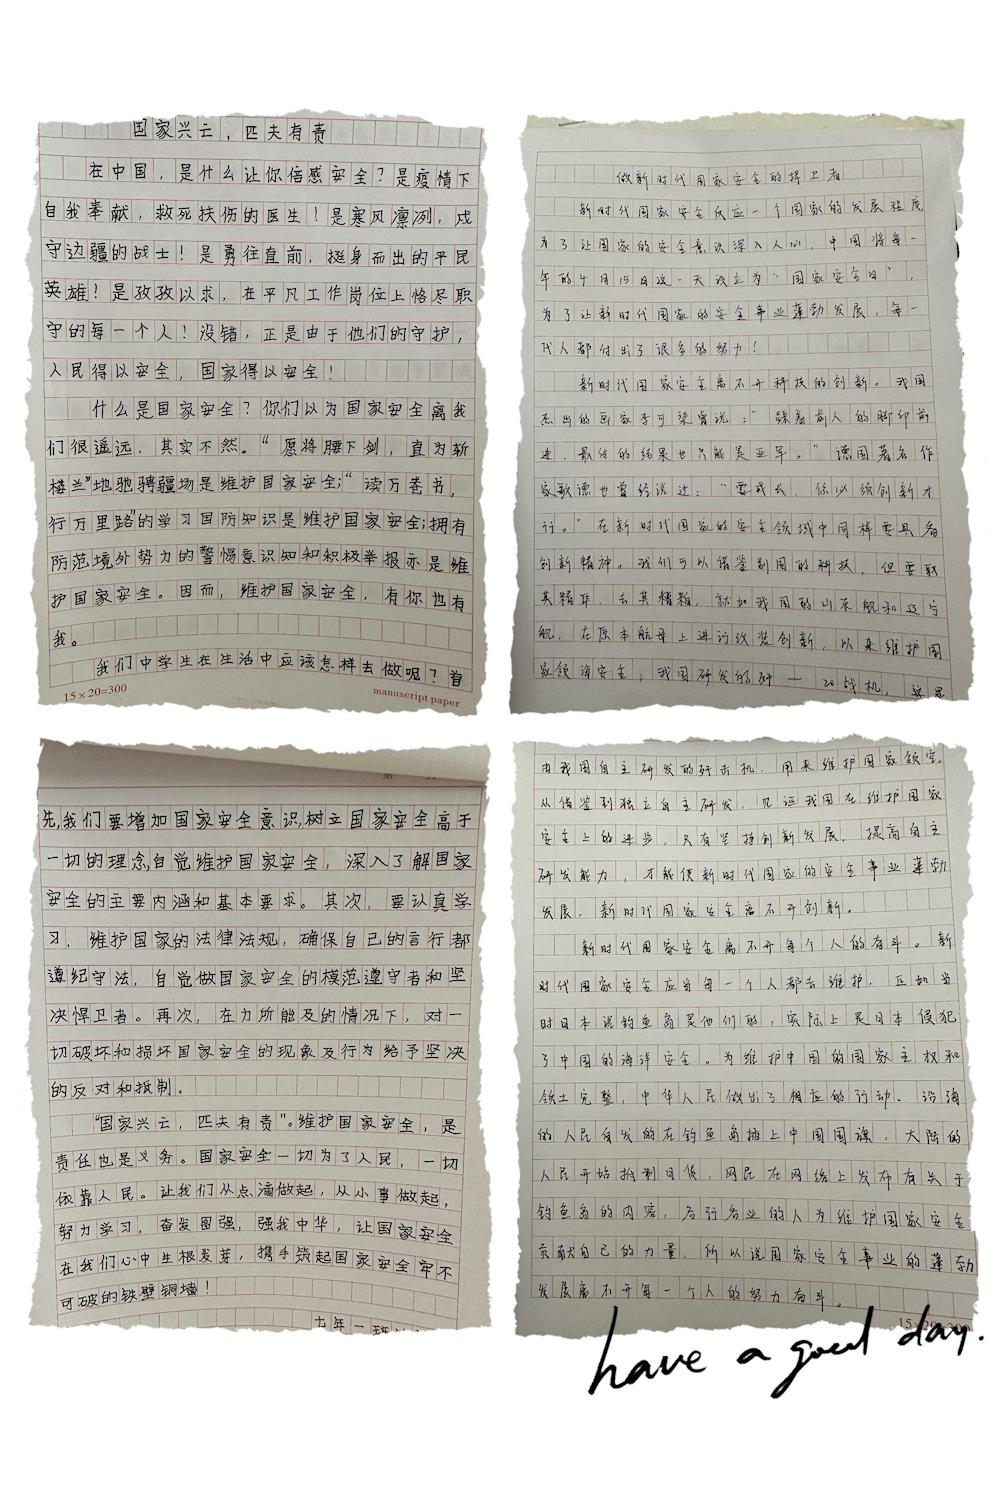 国家兴亡，匹夫有责
在中国，是什么让你倍感安全？是疫情下
自我奉献，救死扶伤的医生！是寒风凛冽，戍
守边疆的战士！是勇往直前，挺身而出的平民
英雄！是孜孜以求，在平凡工作岗位上恪尽职
守的每一个人！没错，正是由于他们的守护，
人民得以安全，国家得以安全！
什么是国家安全？你们以为国家安全离我
们很遥远，其实不然。“愿将腰下剑，直为斩
楼兰”地驰骋疆场是维护国家安全；“读万卷书，
行万里路”的学习国防知识是维护国家安全；拥有
防范境外势力的警惕意识知和积极举报亦是维
护国家安全。因而，维护国家安全，有你也有
我。
我们中学生在生活中应该怎样去做呢？首
15×20=300 manuscript paper
先,我们要增加国家安全意识,树立国家安全高于
一切的理念,自觉维护国家安全，深入了解国家
安全的主要内涵和基本要求。其次，要认真学
习，维护国家的法律法规，确保自己的言行都
遵纪守法，自觉做国家安全的模范遵守者和坚
决悍卫者。再次，在力所能及的情况下，对一
切破坏和损坏国家安全的现象及行为给予坚决
的反对和抵制。
“国家兴亡，匹夫有责”。维护国家安全，是
责任也是义务。国家安全一切为了人民，一切
依靠人民。让我们从点滴做起，从小事做起，
努力学习，奋发图强，强我中华，让国家安全
在我们心中生根发芽，携手筑起国家安全牢不
可破的铁壁铜墙！
七年一班
做新时代国家安全的捍卫者
新时代国家安全反应一个国家的发展程度
为了让国家的安全意识深入人心，中国将每一
年的4月15日这一天设立为“国家安全日”，
为了让新时代国家的安全事业蓬勃发展，每一
代人都付出了很多的努力！
新时代国家安全离不开科技的创新。我国
杰出的画家李可染曾说：“踩着前人的脚印前
进，最佳的结果也只能是亚军。”德国著名作
家歌德也曾经说过：“要成长，你必须创新才
行。”在新时代国家的安全领域中同样要具备
创新精神。我们可以借鉴别国的科技，但要取
其精华，去其糟粕，就如我国的山东舰和辽宁
舰，在原本航母上进行改装创新，以来维护国
家领海安全；我国研发的歼－20战机，这是
由我国自主研发的歼击机，用来维护国家领空。
从借鉴到独立自主研发，见证我国在维护国家
安全上的进步，只有坚持创新发展，提高自主
研发能力，才能使新时代国家的安全事业蓬勃
发展，新时代国家安全离不开创新。
新时代国家安全离不开每个人的奋斗。新
时代国家安全应当每一个人都去维护，正如当
时日本说钓鱼岛是他们的，实际上是日本侵犯
了中国的海洋安全。为维护中国的国家主权和
领土完整，中华人民做出了相应的行动。沿海
的人民自发的在钓鱼岛插上中国国旗，大陆的
人民开始抵制日货，网民在网络上发布有关于
钓鱼岛的内容，各行各业的人为维护国家安全
贡献自己的力量，所以说国家安全事业的蓬勃
发展离不开每一个人的努力奋斗。
15×20=300
have a good day.